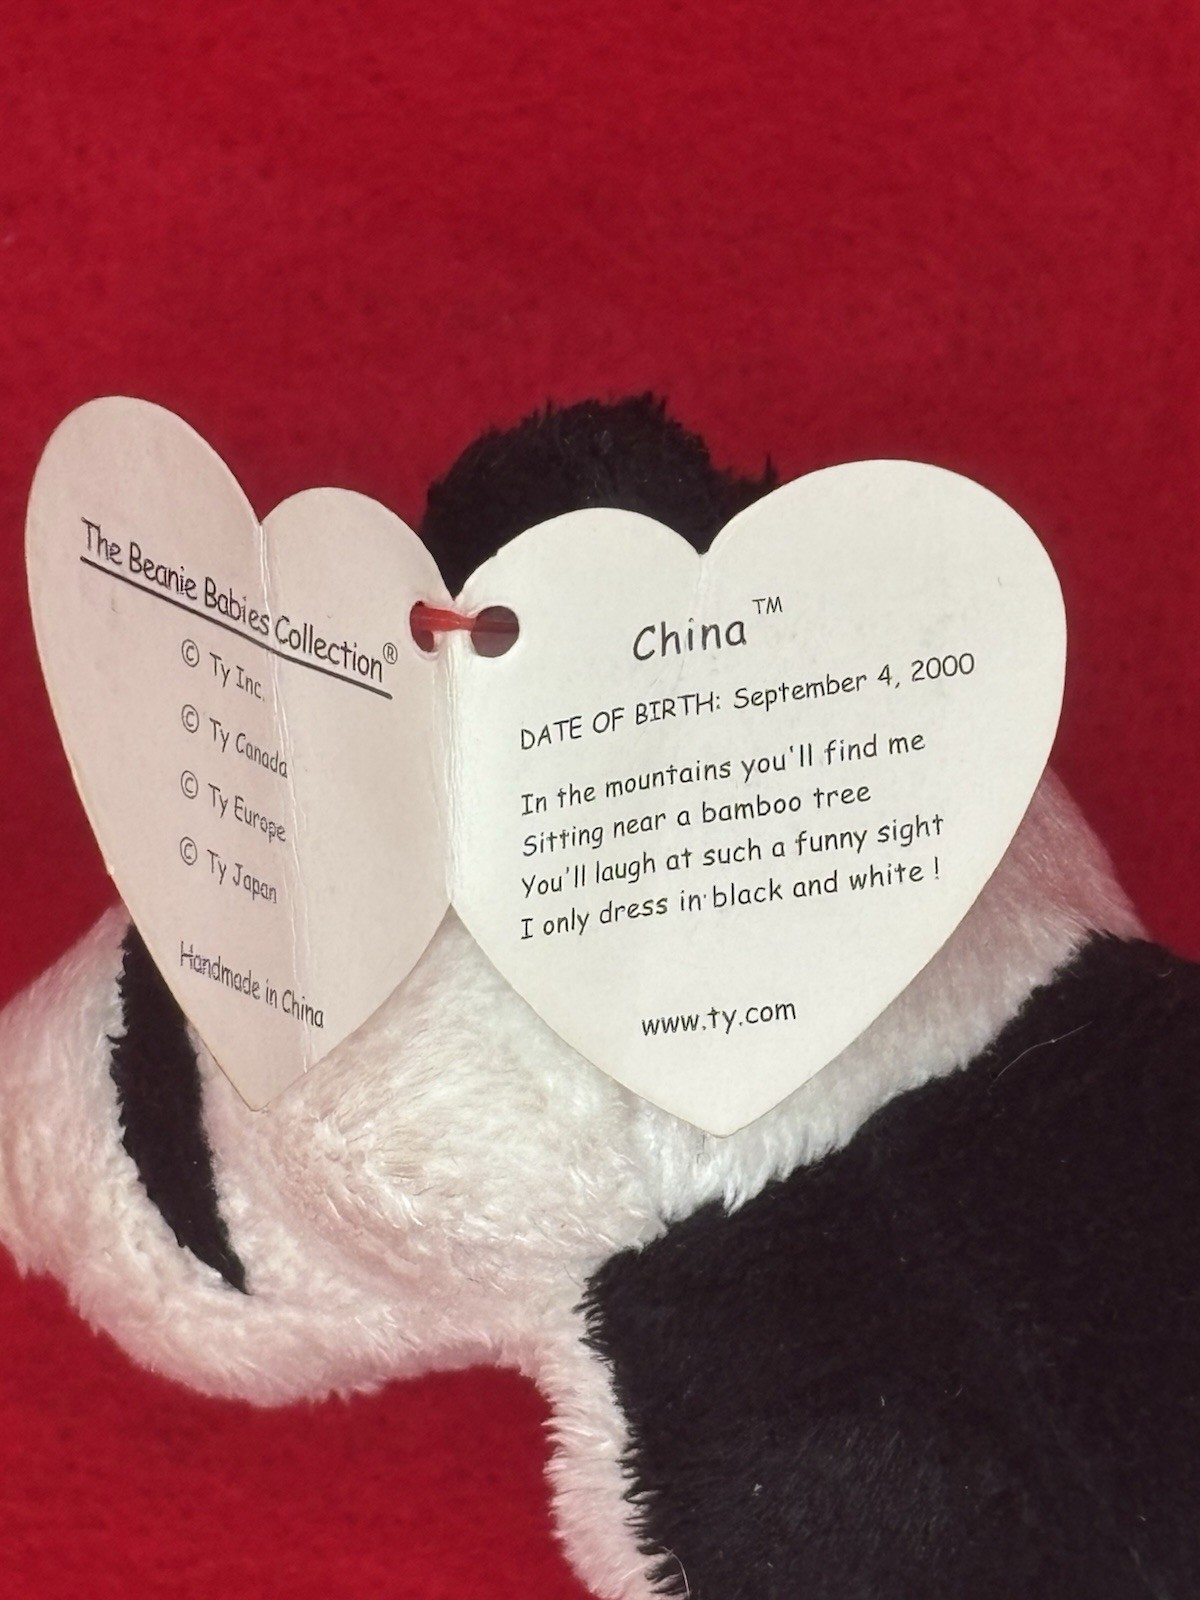 The Beanie Babies Collection®
© Ty Inc.
© Ty Canada
© Ty Europe
© Ty Japan
Handmade in China
China™
DATE OF BIRTH: September 4, 2000
In the mountains you'll find me
Sitting near a bamboo tree
You'll laugh at such a funny sight
I only dress in black and white !
www.ty.com